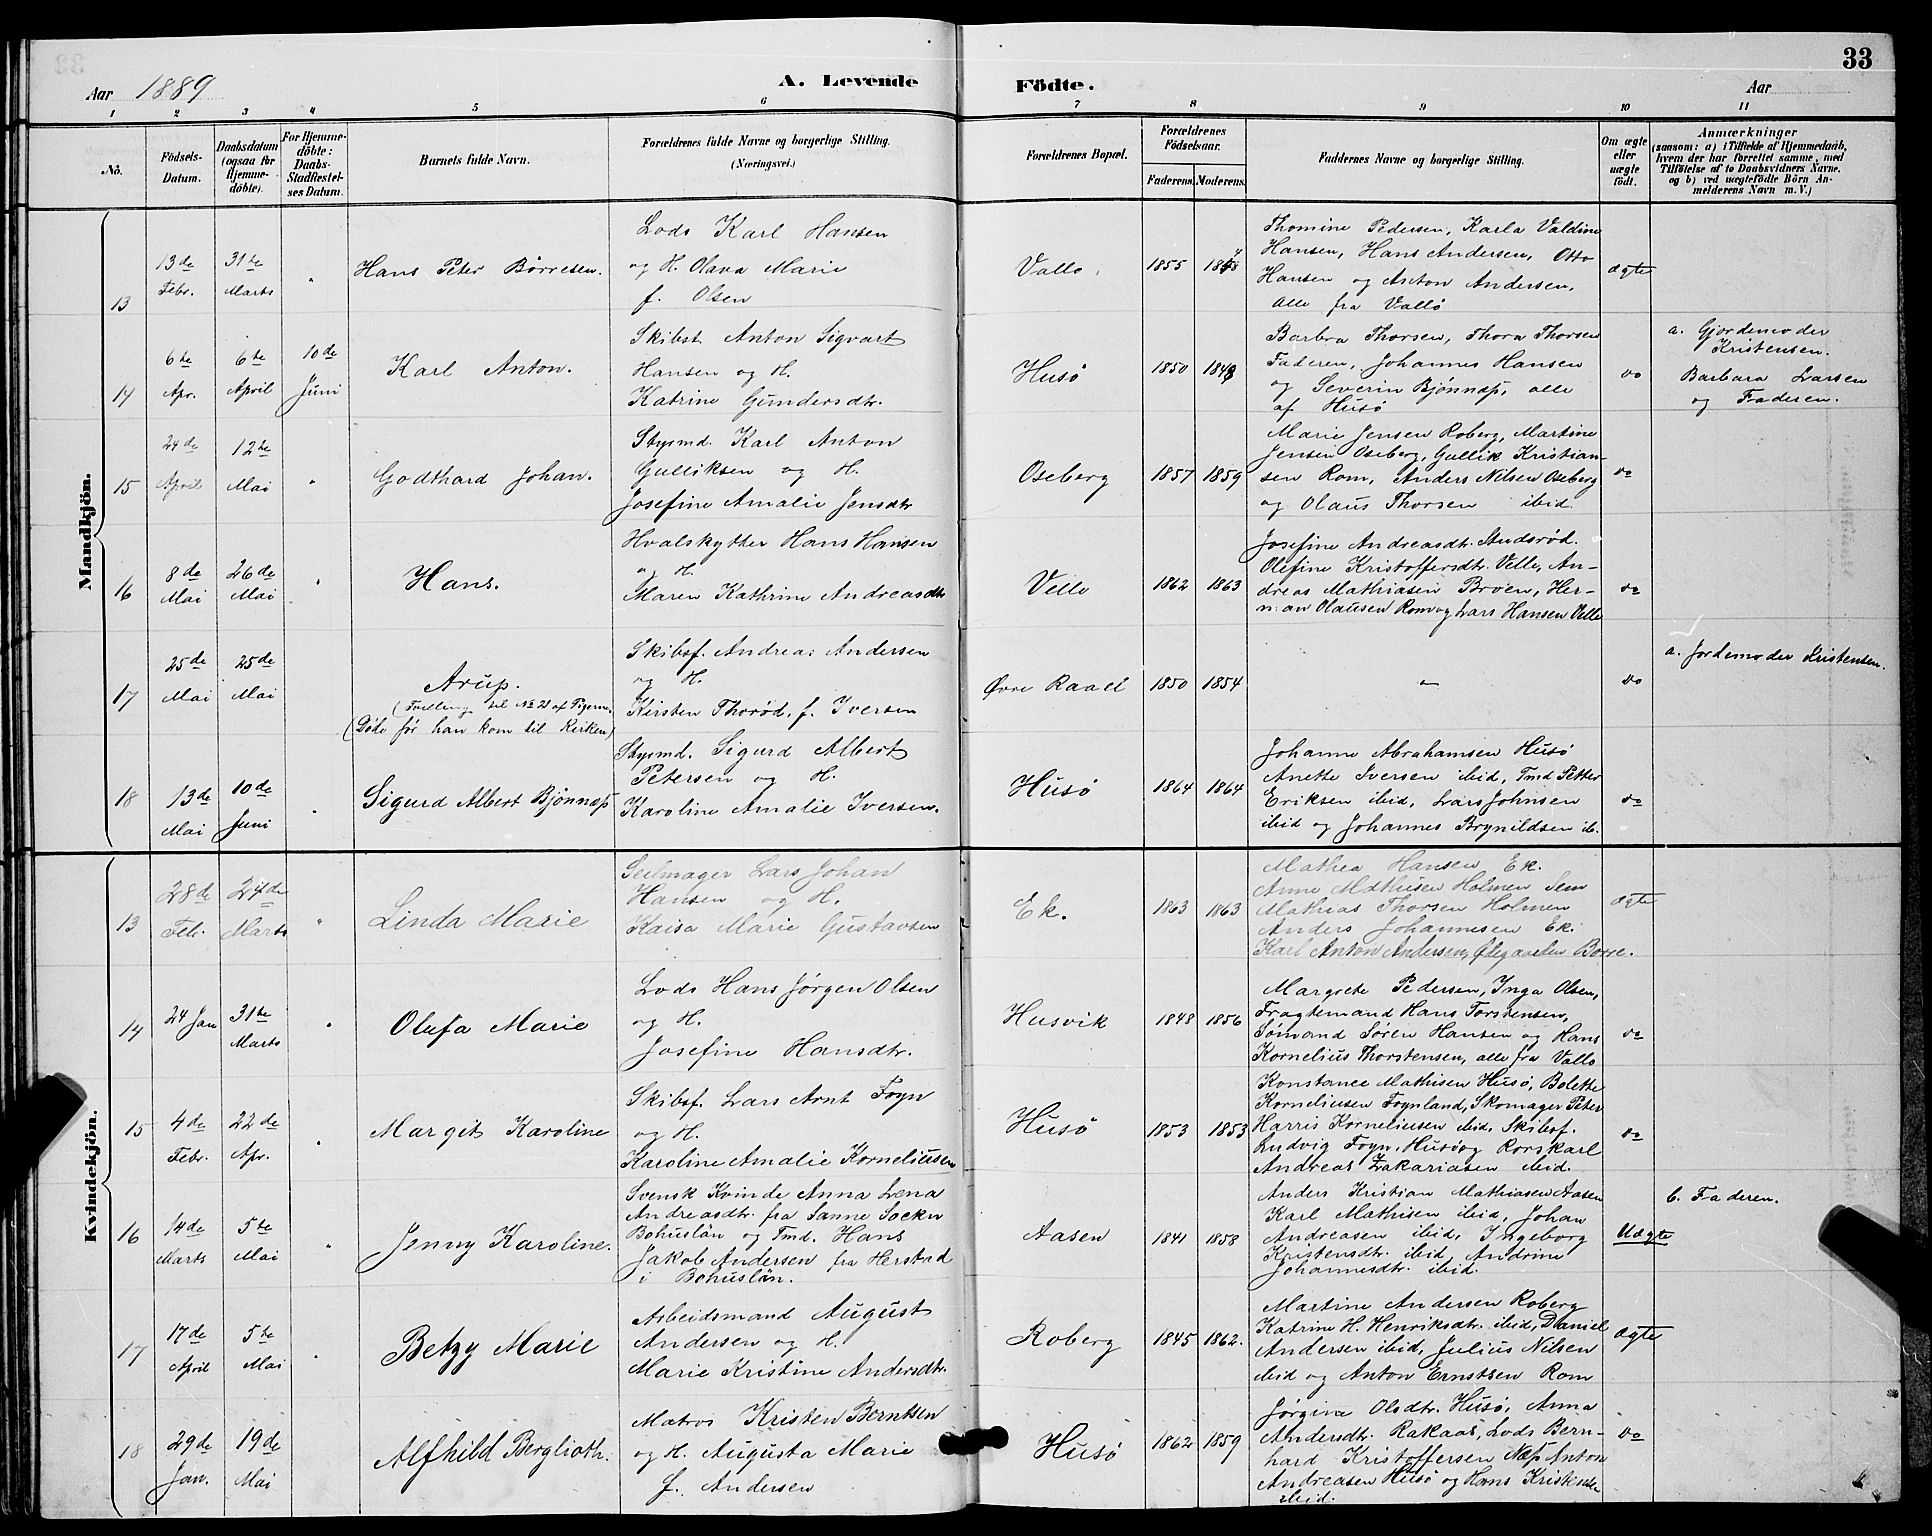 33
Aar 1889 A. Levende Födte. Aar
1 2 3 4 5 6 7 8 9 10 11
No.
Födsels-
Datum.
Daabsdatum
(ogsaa for
Hjemme-
döbte).
For Hjemme-
döbte:
Daabs-
Stadfæstel-
ses Datum.
Barnets fulde Navn.
Forældrenes fulde Navne og borgerlige Stilling.
(Næringsvei.)
Forældrenes Bopæl.
Forældrenes
Födselsaar.
Faderens. Moderens.
Faddernes Navne og borgerlige Stilling.
Om ægte
eller
uægte
födt.
Anmærkninger
(saasom: a) i Tilfælde af Hjemmedaab,
hvem der har forrettet samme, med
Tilföielse af to Daabsvidners Navne.
og b) ved uægtefödte Börn An-
melderens Navn m. V.)
Mandkjön.
13
13de
Febr.
31te
Marts
"
Hans Peter Børresen.
Lods Karl Hansen
og H. Olava Marie
f. Olsen
Vallø
1855
Thomine Pedersen, Karla Valdine
Hansen, Hans Andersen, Otto
Hansen og Anton Andersen,
alle fra Vallö
ægte
14
6te
Apr.
6te
April
10de
Juni
Karl Anton.
Skibst. Anton Sigvart
Hansen og H.
Katrine Gundersdtr.
Husö
1850 1848
Barbra Thorsen, Thora Thorsen
Faderen, Johannes Hansen
og Severin Bjönnæs, alle
af Husö
do
a. Gjordemoder
Kristensen.
Barbara Larsen
og Faderen.
15
24de
April
12te
Mai
"
Godthard Johan.
Styrmd. Karl Anton
Gulliksen og H.
Josefine Amalie Jensdtr
Oseberg
1857 1859
Marie Jensen Roberg, Martine
Jensen Oseberg, Gullik Kristian-
sen Rom, Anders Nilsen Oseberg
og Olaus Thorsen ibid.
do
16
8de
Mai
26de
Mai
"
Hans.
Hvalskytter Hans Hansen
og H.
Maren Kathrine Andreasdtr
Velle
1862 1863
Josefine Andreasdtr.
Olefine Kristoffersdtr. Velle, An-
dreas Mathiasen Broen, Her-
man Olausen Rom og Lars Hansen Velle
do
17
25de
Mai
25de
Mai
Arup.
(Tvilling til No 21 af Pigerne.
(Døde før han kom til Kirken)
Skibsf. Andreas Andersen
og H.
Kirsten Thorød, f. Iversen
Øvre Raael
1850 1854
"
do
a. Jordemoder Kristensen.
18
13de
Mai
10de
Juni
"
Sigurd Albert Bjönnæs
Styrmd. Sigurd Albert
Petersen og H.
Karoline Amalie Iversen.
Husö
1864 1864
Johanne Abrahamsen Husö
Anette Iversen ibid, Tmd Petter
Eriksen ibid, Lars Johnsen
ibid og Johannes Brynildsen ib.
do
Kvindekjön.
13
28de
Feb.
24de
Marts
"
Linda Marie
Seilmager Lars Johan
Hansen og H.
Kaisa Marie Gustavsen
Ek.
1863 1863
Mathea Hansen Ek.
Anne Mathisen Holmen Sem
Mathias Thorsen Holmen
Anders Johannesen Ek.
Karl Anton Andersen, Ødegaarden Borre.
ægte
14
24 Jan
31te
Marts
"
Olufa Marie
Lods Hans Jörgen Olsen
og H.
Josefine Hansdtr.
Husvik
1848 1856
Margrete Pedersen, Inga Olsen,
Fragtemand Hans Torstensen,
Sømand Sören Hansen og Hans
Kornelius Thorstensen, alle fra Vallo
do
15
4de
Febr.
22de
Apr.
"
Margit Karoline
Skibsf. Lars Arnt Foyn
og H.
Karoline Amalie Korneliusen
Husö
1853 1853
Konstance Mathisen Husö, Bolette
Korneliusen Foynland, Skomager Peter
Harris Korneliusen ibid, Skibsf.
Ludvig Foyn, Husö og Rorskarl
Andreas Zakariasen ibid.
do
16
14de
Marts
5te
Mai
"
Jenny Karoline.
Svensk Kvinde Anna Lena
Andreasdtr. fra Sanne Socken
Bohuslän og Tmd. Hans
Jakob Andersen fra Herstad
i Bohuslän.
Aasen
1841 1858
Anders Kristian Mathiasen Aasen
Karl Mathisen ibid, Johan
Andreasen ibid, Ingeborg
Kristensdtr. ibid, Andrine
Johannesdtr. ibid.
Uægte
b. Faderen.
17
17de
April
5te
Mai
"
Betzy Marie
Arbeidsmand August
Andersen og H.
Marie Kristine Andersdtr.
Roberg
1845 1862.
Martine Andersen Roberg
Katrine H. Henriksdtr. ibid, Daniel
Andersen ibid, Julius Nilsen
ibid og Anton Ernstsen Rom
ægte
18
29de
Jan.
19de
Mai
Alfhild Berglioth.
Matros Kristen Berntsen
og H. Augusta Marie
f. Andersen
Husö
1862 1859
Jørgine Olsdtr. Husö, Anna
Andersdtr. Rakaas, Lods Bern-
hard Kristoffersen Næs, Anton
Andreasen Husö og Hans Kristensen
ibid.
do